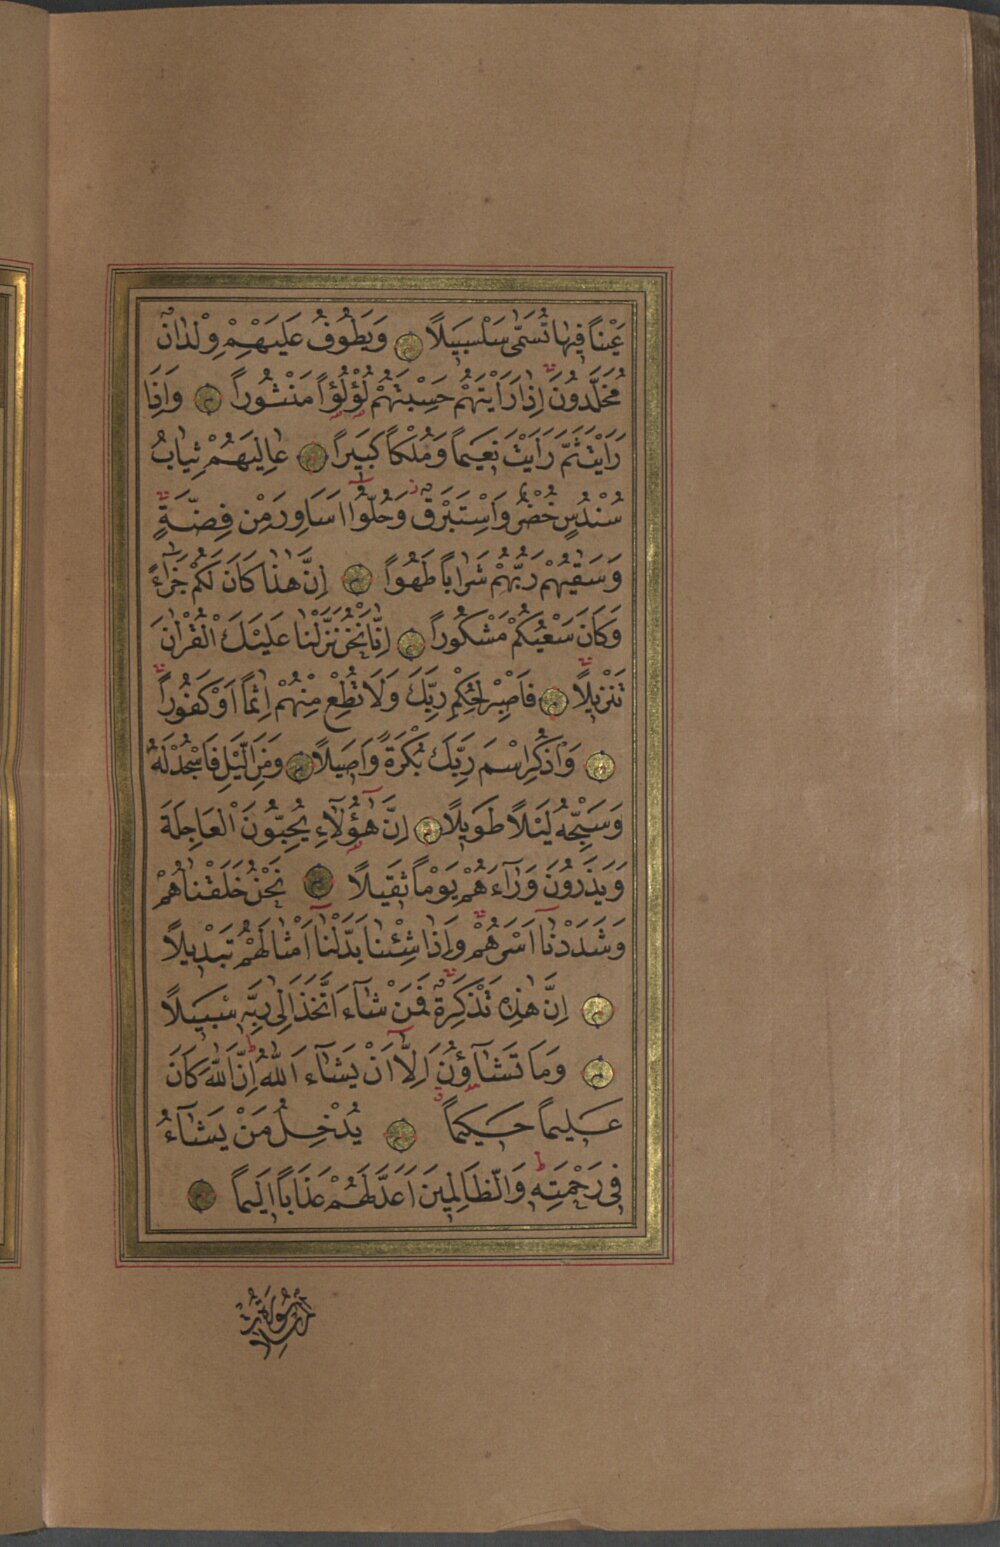 عَيْنًا فِيهَا تُسَمّٰى سَلْسَبِيلًا وَيَطُوفُ عَلَيْهِمْ وِلْدَانٌ
مُخَلَّدُونَ اِذَا رَاَيْتَهُمْ حَسِبْتَهُمْ لُؤْلُؤًا مَنْثُورًا وَاِذَا
رَاَيْتَ ثَمَّ رَاَيْتَ نَعِيمًا وَمُلْكًا كَبِيرًا عَالِيَهُمْ ثِيَابُ
سُنْدُسٍ خُضْرٌ وَاِسْتَبْرَقٌ وَحُلُّوا اَسَاوِرَ مِنْ فِضَّةٍ
وَسَقٰيهُمْ رَبُّهُمْ شَرَابًا طَهُورًا اِنَّ هٰذَا كَانَ لَكُمْ جَزَآءً
وَكَانَ سَعْيُكُمْ مَشْكُورًا اِنَّا نَحْنُ نَزَّلْنَا عَلَيْكَ الْقُرْاٰنَ
تَنْزِيلًا فَاصْبِرْ لِحُكْمِ رَبِّكَ وَلَا تُطِعْ مِنْهُمْ اٰثِمًا اَوْ كَفُورًا
وَاذْكُرِ اسْمَ رَبِّكَ بُكْرَةً وَاَصِيلًا وَمِنَ الَّيْلِ فَاسْجُدْ لَهُ
وَسَبِّحْهُ لَيْلًا طَوِيلًا اِنَّ هٰٓؤُلَآءِ يُحِبُّونَ الْعَاجِلَةَ
وَيَذَرُونَ وَرَآءَهُمْ يَوْمًا ثَقِيلًا نَحْنُ خَلَقْنَاهُمْ
وَشَدَدْنَآ اَسْرَهُمْ وَاِذَا شِئْنَا بَدَّلْنَآ اَمْثَالَهُمْ تَبْدِيلًا
اِنَّ هٰذِهِ تَذْكِرَةٌ فَمَنْ شَآءَ اتَّخَذَ اِلٰى رَبِّهِ سَبِيلًا
وَمَا تَشَآؤُنَ اِلَّآ اَنْ يَشَآءَ اللّٰهُ اِنَّ اللّٰهَ كَانَ
عَلِيمًا حَكِيمًا يُدْخِلُ مَنْ يَشَآءُ
فِي رَحْمَتِهِ وَالظَّالِمِينَ اَعَدَّ لَهُمْ عَذَابًا اَلِيمًا